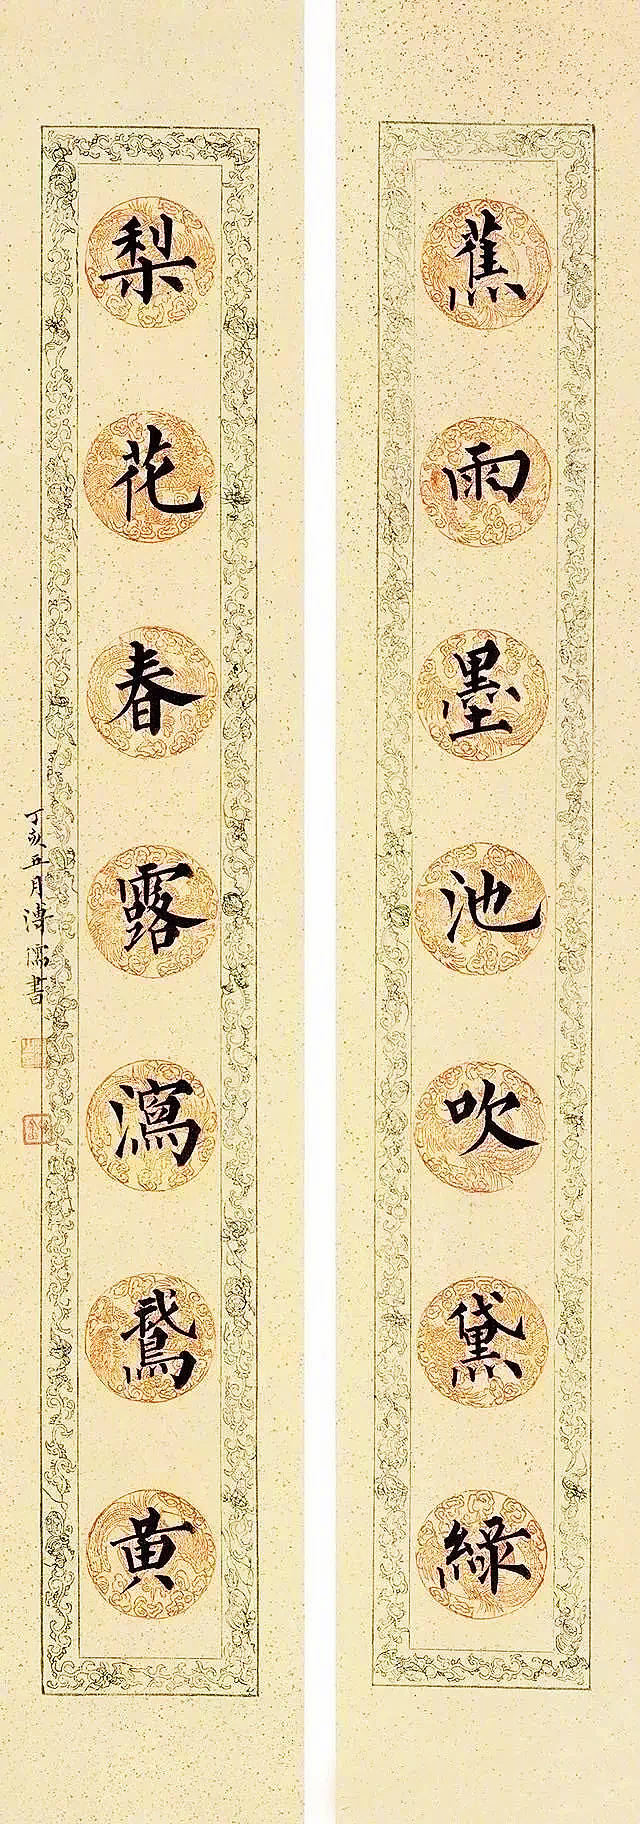 蕉雨墨池吹黛綠
梨花春露瀉鵞黄
丁亥五月溥儒書